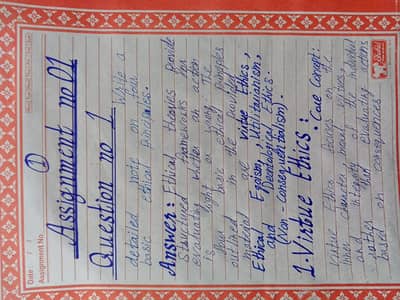 Date: / /
Assignment No.
①
Assignment no 01
Question no 1
Write a
detailed note on four
basic ethical principles.
Answer: Ethical theories provide
structured frameworks for
evaluating whether an action
is right or wrong. The
four basic ethical principles
outlined in the provided
material are Virtue Ethics,
Ethical Egoism, Utilitarianism,
and Deontological Ethics
(Non consequentialism).
1. Virtue Ethics:
Core Concept:
Virtue Ethics focuses on the
inner character, moral virtues,
and integrity of the individual
rather than evaluating actions
based on consequences